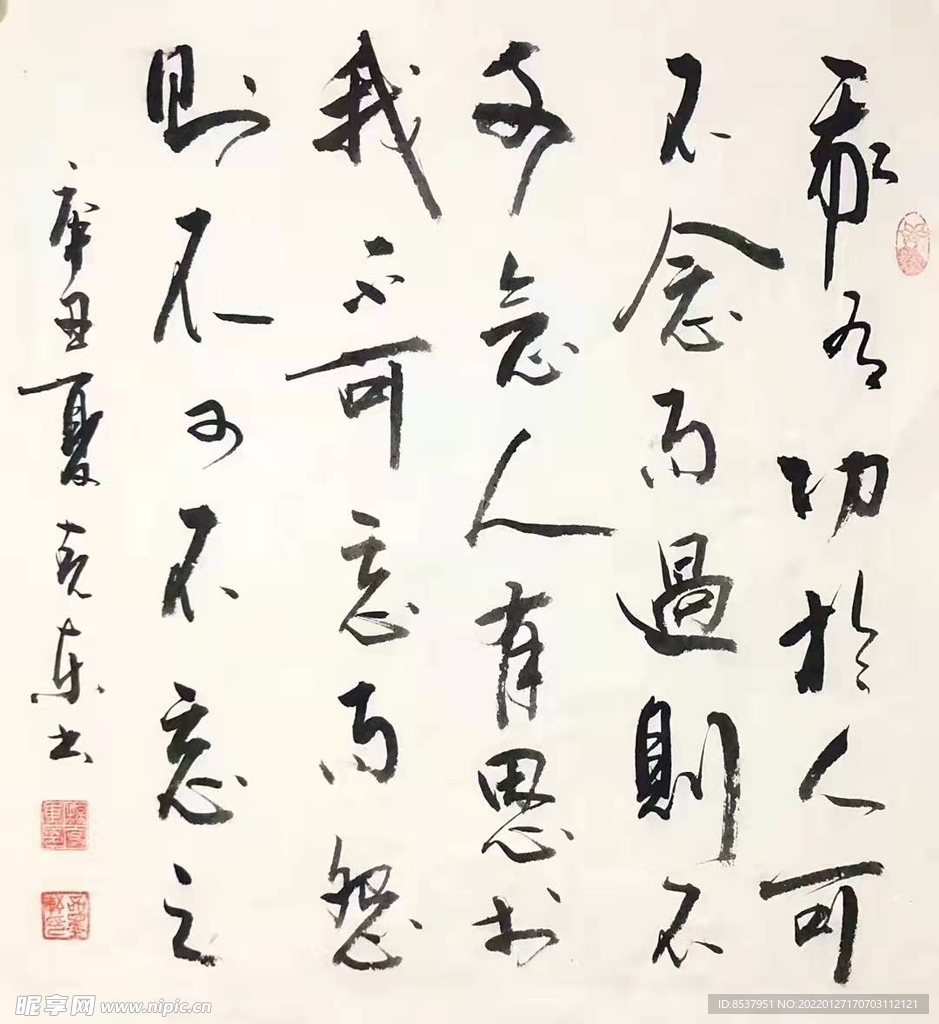 有功於人可
不念而過則不
念人有恩於
我不可忘而怨
則不可不忘之
辛丑夏克东书
昵享网 www.nipic.cn
ID:8537951 NO:20220127170703112121